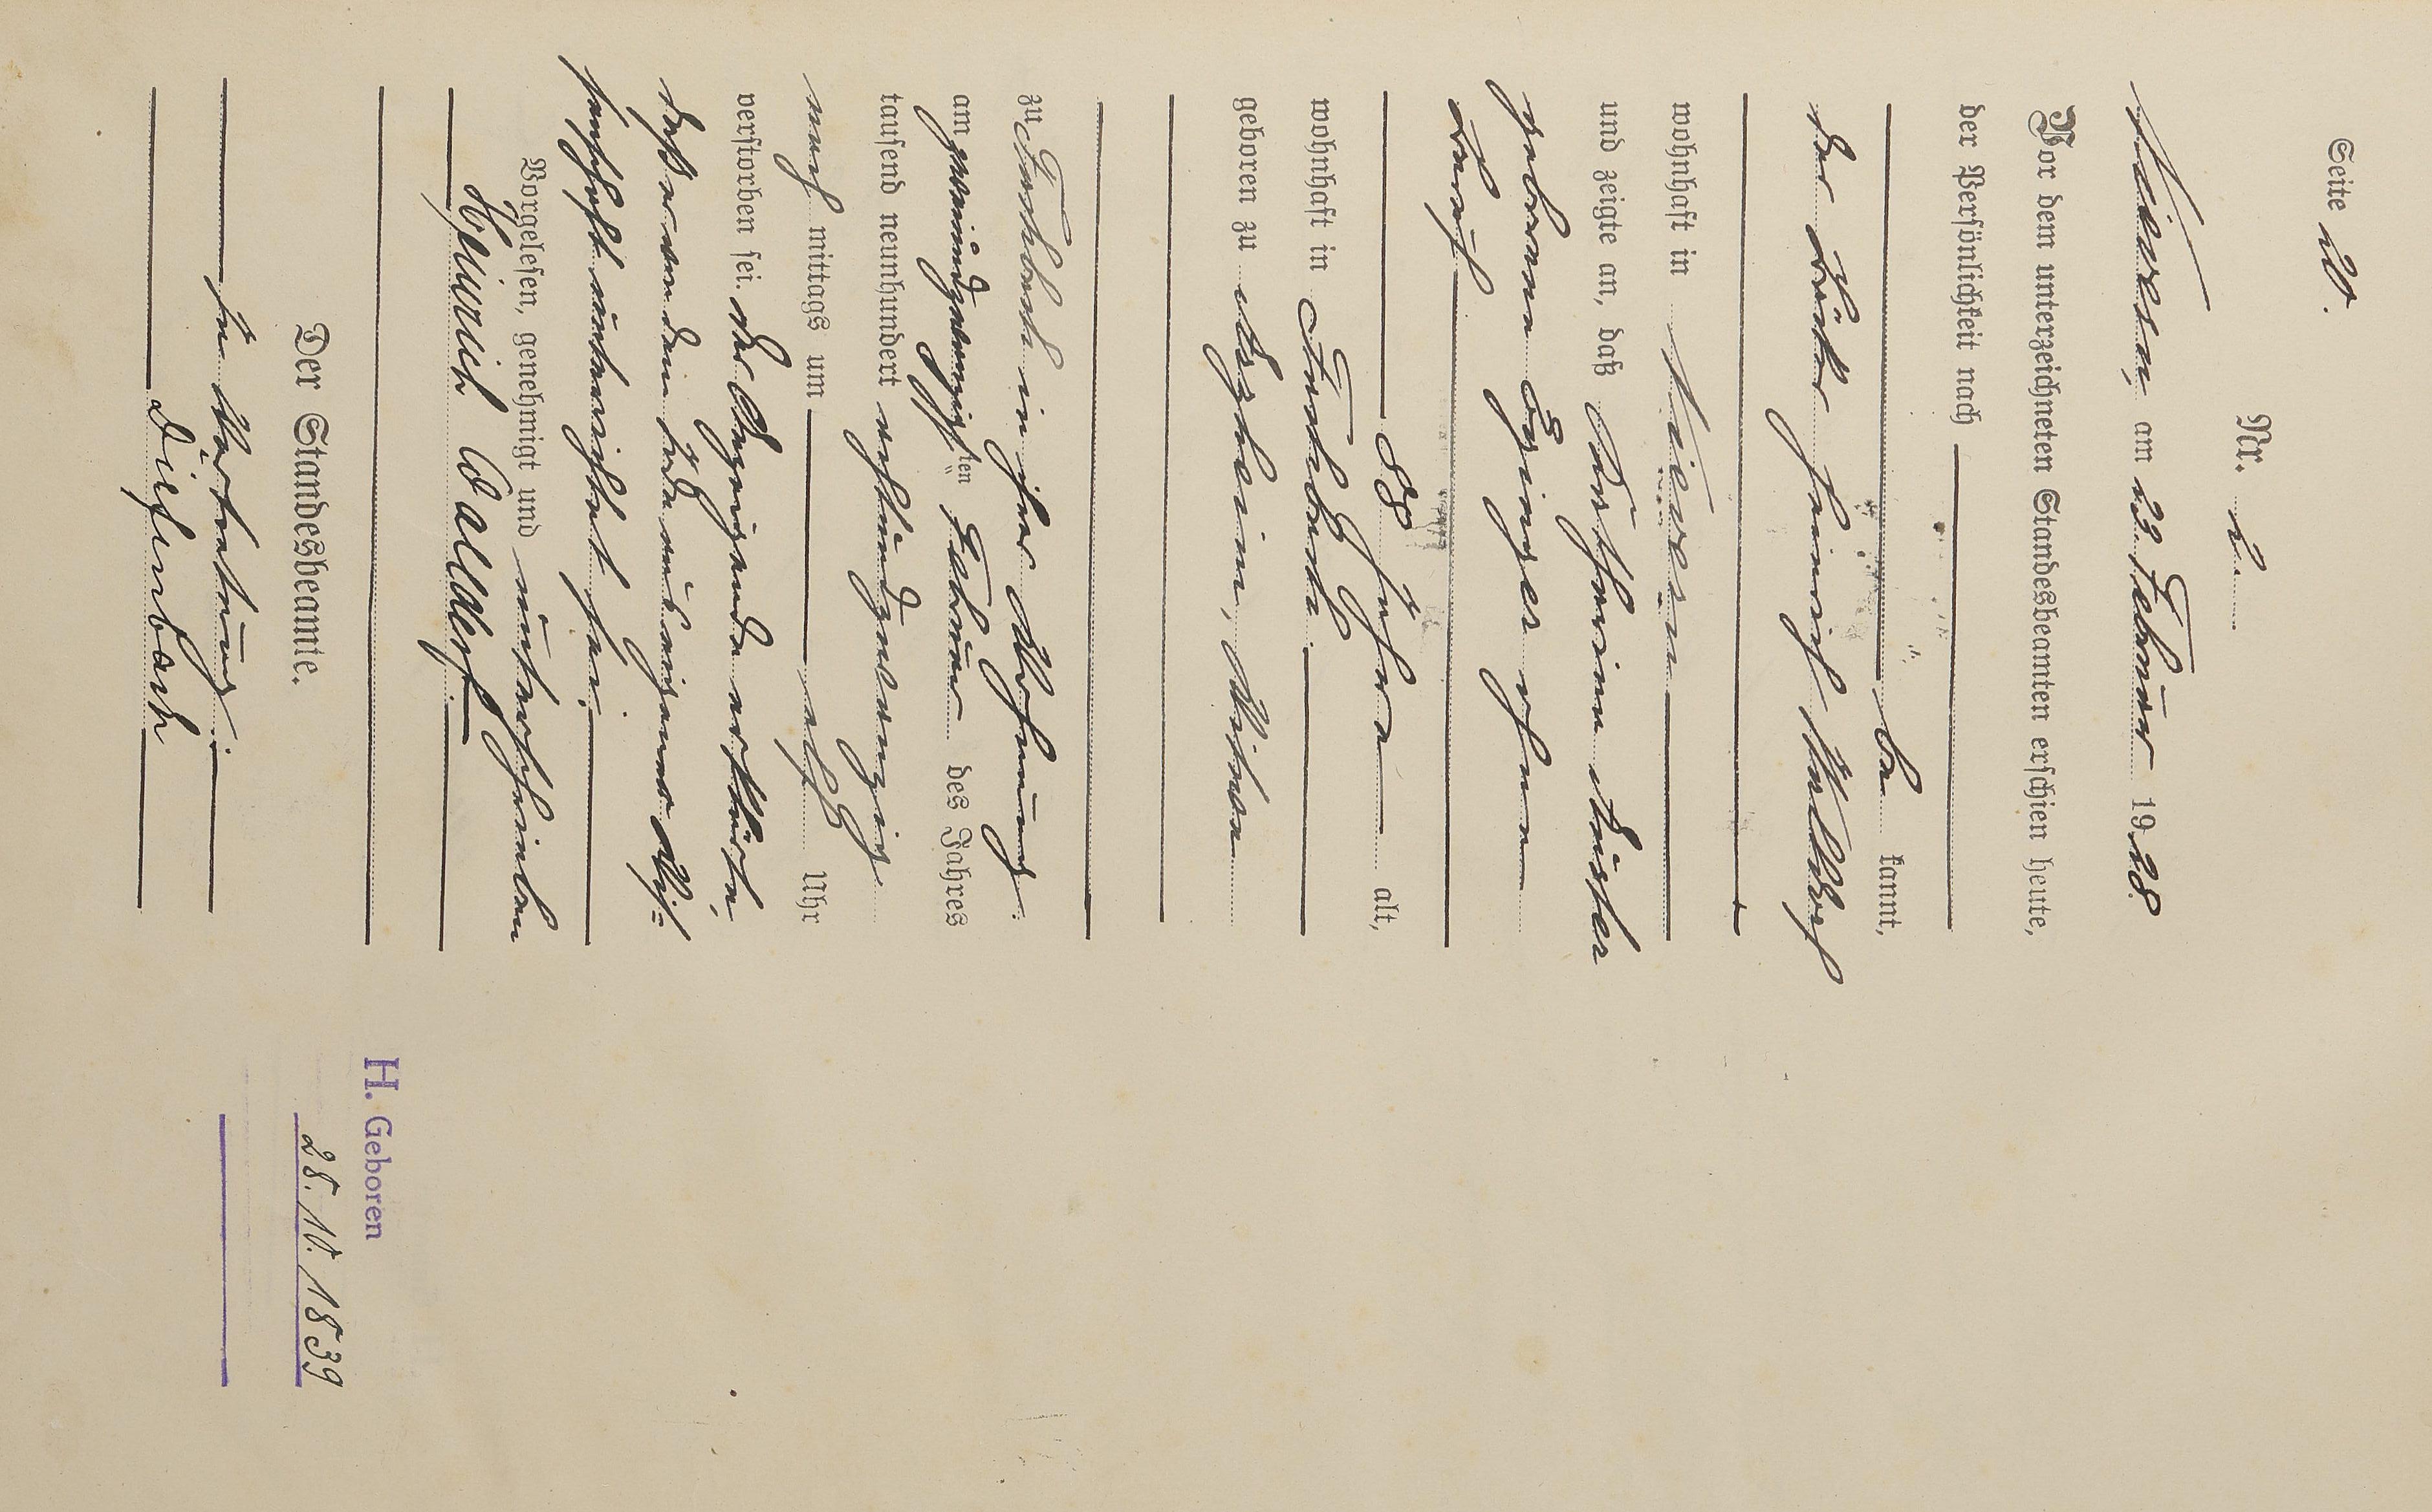 Seite
Nr. 2.
Nievern, am 23. Februar 1928
Vor dem unterzeichneten Standesbeamten erschien heute,
der Persönlichkeit nach
be kannt,
der Heinrich Walldorf
wohnhaft in Nievern
und zeigte an, daß
geborene ohne
Beruf
88 Jahre alt,
wohnhaft in Fachbach
geboren zu Arzheim, Witwe
zu Fachbach in ihrer Wohnung
am zweiundzwanzigsten ten Februar des Jahres
tausend neunhundert achtundzwanzig
nach mittags um Uhr
verstorben sei. Der Anzeigende erklärte,
daß er von dem Tode aus eigener Wis=
senschaft unterrichtet sei.
Vorgelesen, genehmigt und unterschrieben
Heinrich Walldorf
Der Standesbeamte.
In Vertretung:
Diefenbach
H. Geboren
28. 10. 1839